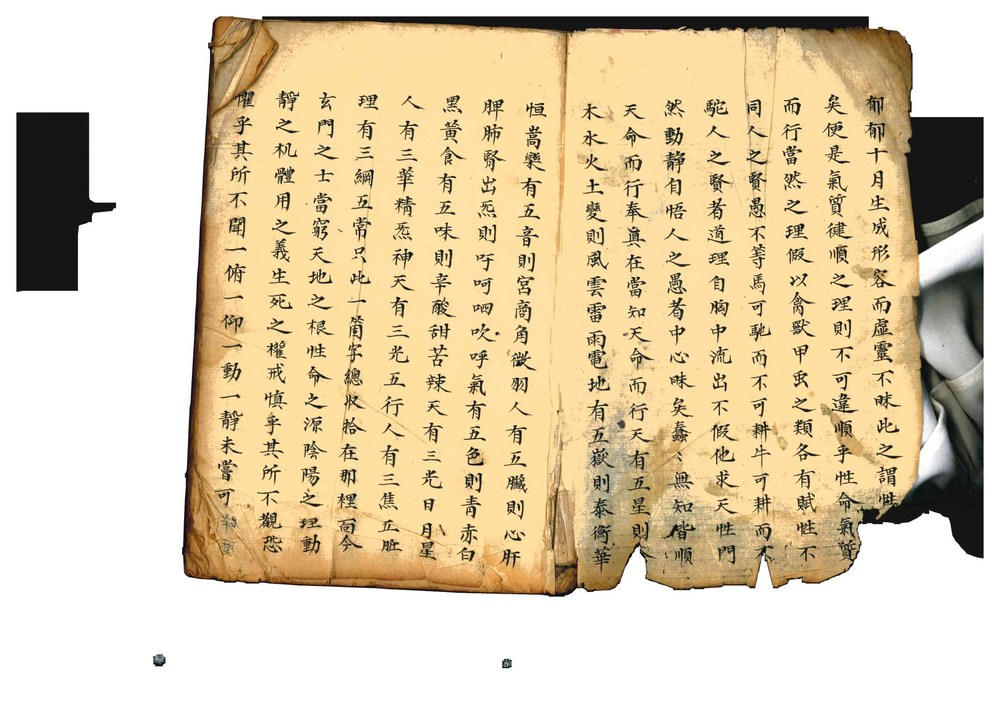 郁郁十月生成形容而虛靈不昧此之謂性
矣便是氣質健順之理則不可違順乎性命氣質
而行當然之理假以禽獸甲虫之類各有賦性不
同人之賢愚不等馬可馳而不可耕牛可耕而不
駝人之賢者道理自胸中流出不假他求天性門
然動靜自悟人之愚者中心昧矣蠢〻無知皆順
天命而行奉眞在當知天命而行天有五星則
木水火土變則風雲雷雨電地有五嶽則泰衡華
恒嵩欒有五音則宮商角徵羽人有五臟則心肝
脾肺腎出炁則吁呵呬吹呼氣有五色則青赤白
黑黃食有五味則辛酸甜苦辣天有三光日月星
人有三華精炁神天有三光五行人有三焦五脏
理有三綱五常只此一箇字總収拾在那裡向今
玄門之士當窮天地之根性命之源陰陽之理動
靜之机體用之義生死之權戒慎乎其所不觀恐
懼乎其所不聞一俯一仰一動一靜未嘗可